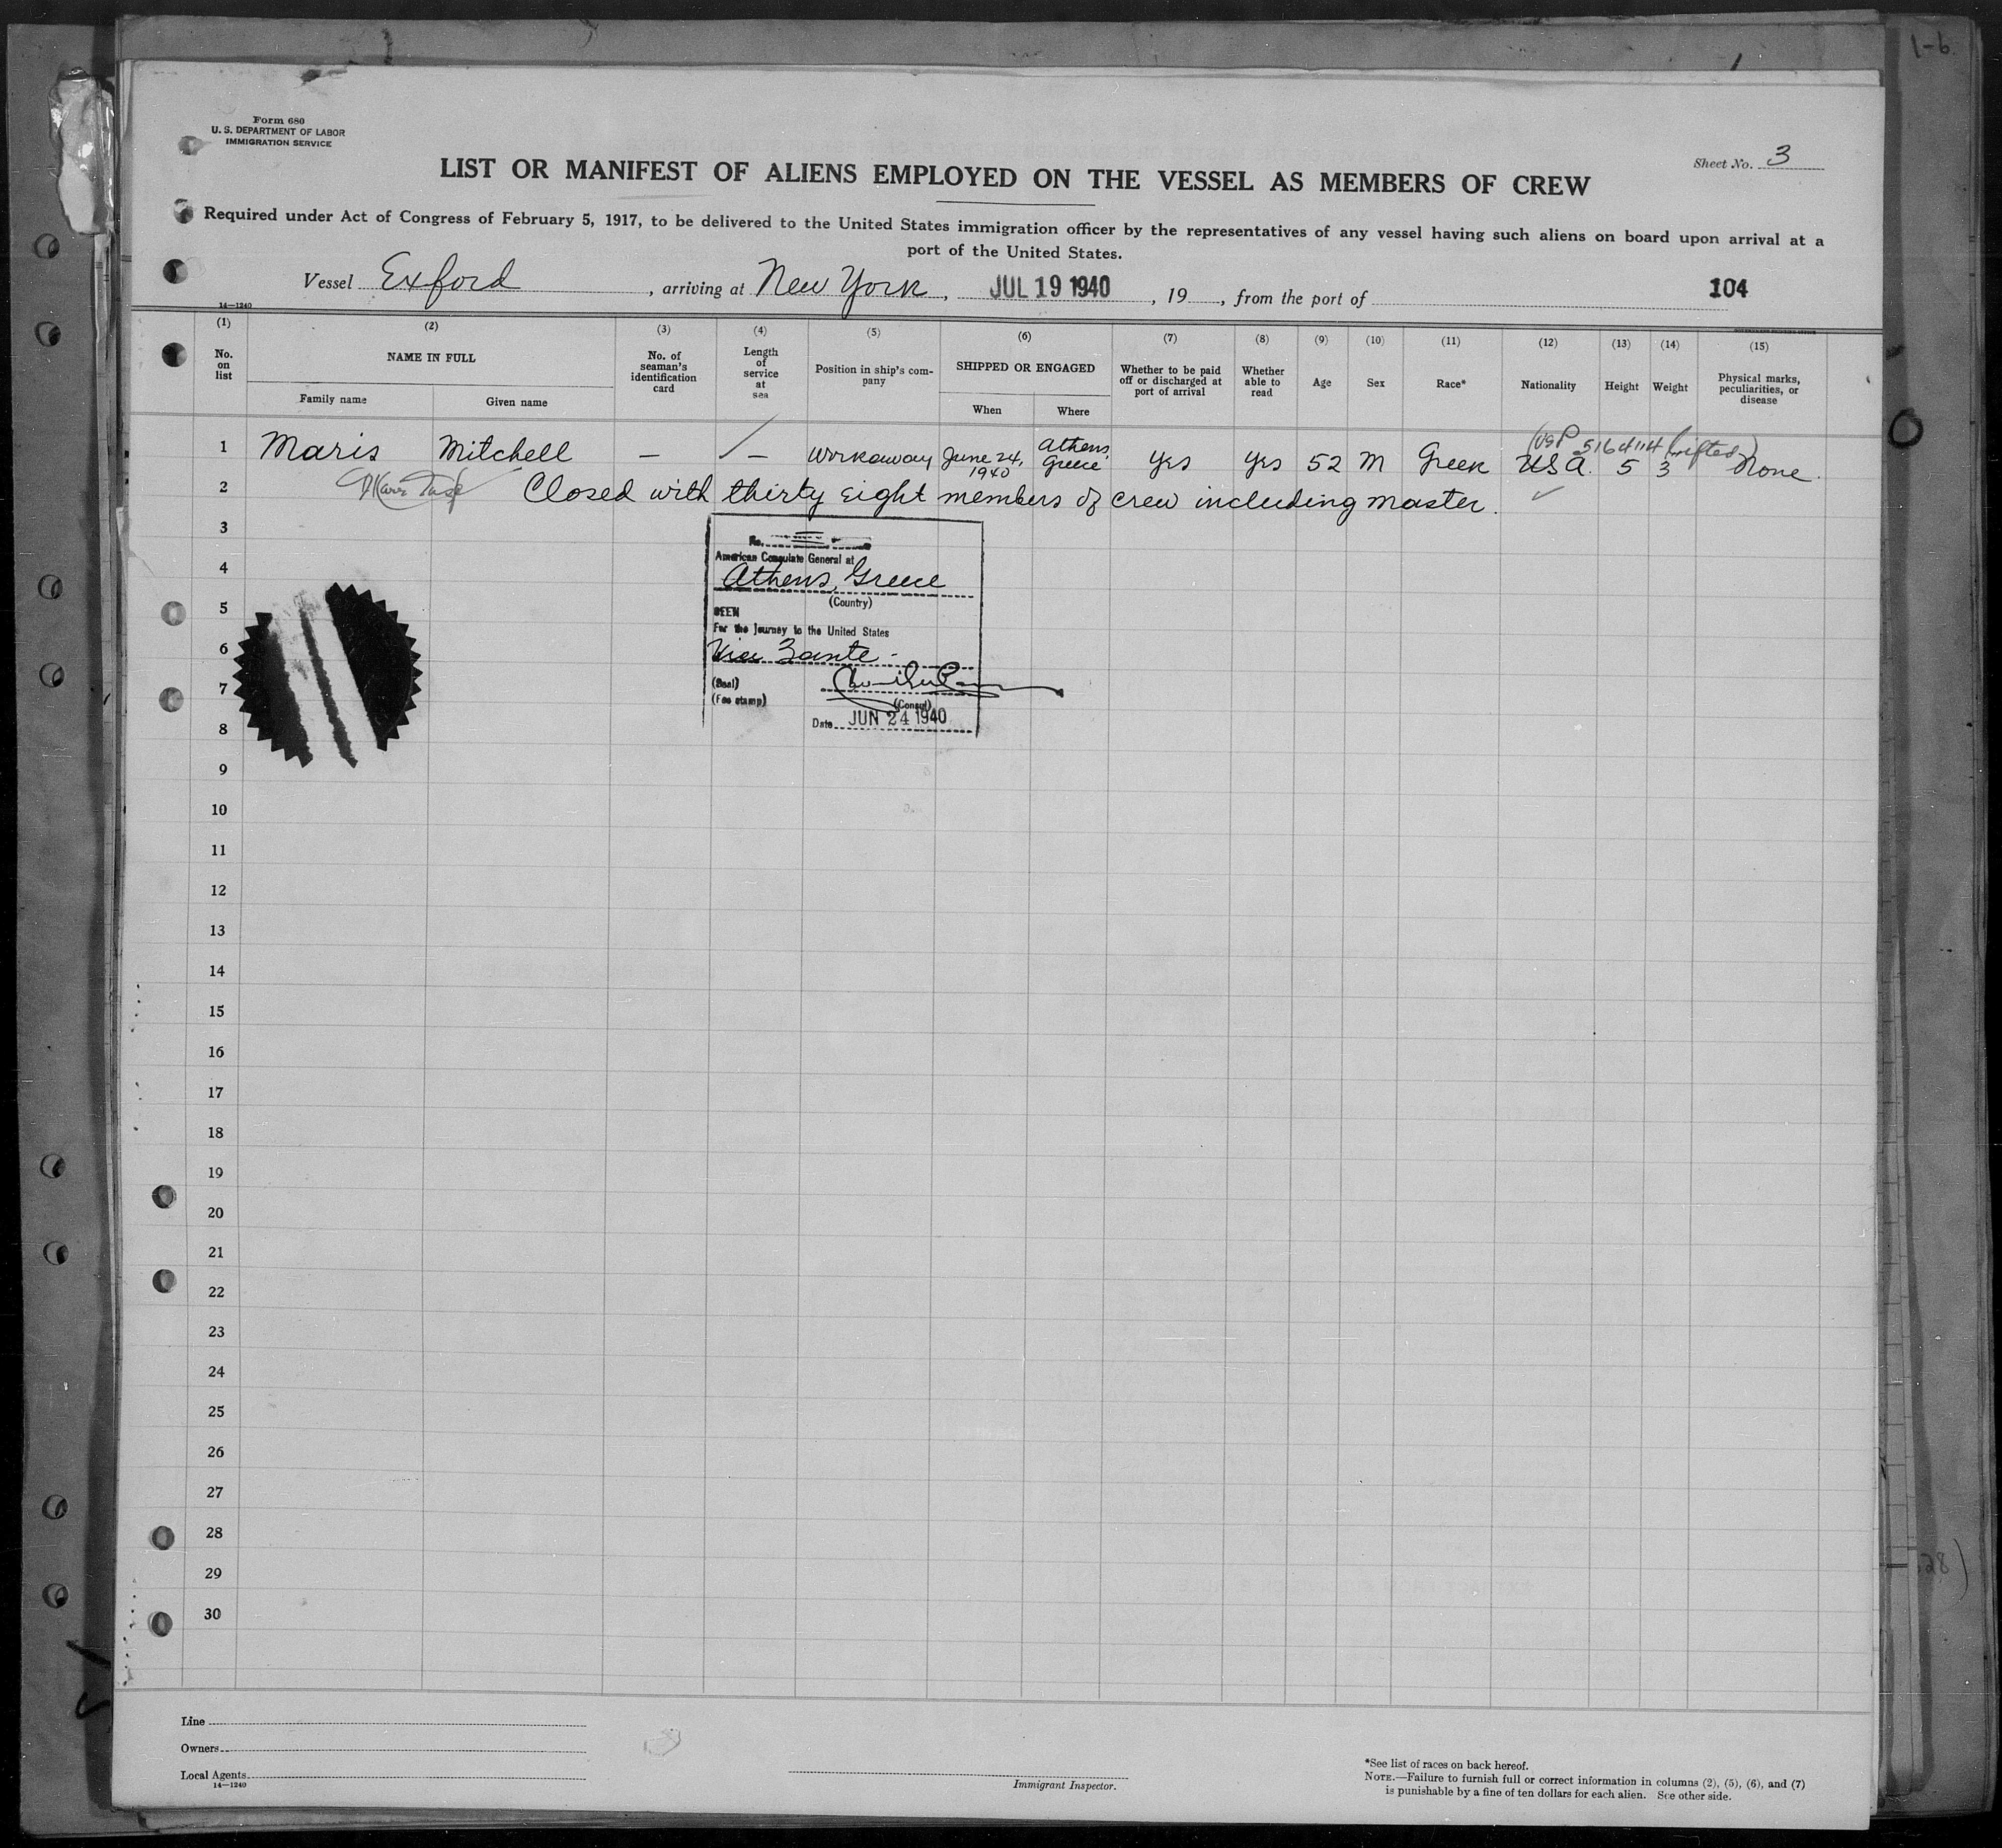 1-6
Form 680
U. S. DEPARTMENT OF LABOR
IMMIGRATION SERVICE
Sheet No. 3
LIST OR MANIFEST OF ALIENS EMPLOYED ON THE VESSEL AS MEMBERS OF CREW
Required under Act of Congress of February 5, 1917, to be delivered to the United States immigration officer by the representatives of any vessel having such aliens on board upon arrival at a
port of the United States.
Vessel Exford, arriving at New York, JUL 19 1940, 19, from the port of
104
14—1240
(1) (2) (3) (4) (5) (6) (7) (8) (9) (10) (11) (12) (13) (14) (15)
No. on list
NAME IN FULL
Family name
Given name
No. of seaman's identification card
Length of service at sea
Position in ship's company
SHIPPED OR ENGAGED
When
Where
Whether to be paid off or discharged at port of arrival
Whether able to read
Age
Sex
Race*
Nationality
Height
Weight
Physical marks, peculiarities, or disease
USP 516414
1 Maris Mitchell — — Workaway June 24, 1940 Athens, Greece Yes Yes 52 M Greek USA. 5 3 None.
2 Closed with thirty eight members of crew including master.
3
No.
American Consulate General at
4
Athens, Greece
(Country)
5
SEEN
For the journey to the United States
6
Via Zante
7
(Seal)
(Fee stamp)
(Consul)
8
Date JUN 24 1940
9
10
11
12
13
14
15
16
17
18
19
20
21
22
23
24
25
26
27
28
29
30
28)
Line
Owners
Local Agents
14—1240
Immigrant Inspector.
*See list of races on back hereof.
NOTE.—Failure to furnish full or correct information in columns (2), (5), (6), and (7)
is punishable by a fine of ten dollars for each alien. See other side.